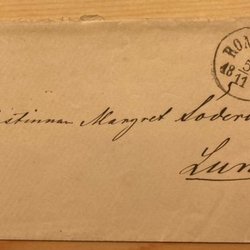 ROM
3
18 11
stinnan Margret Söder
Lun